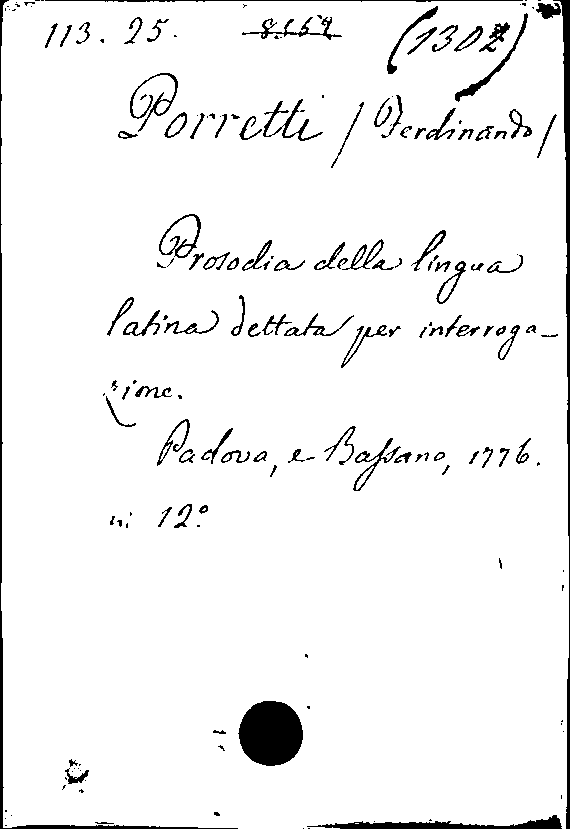 113. 25. 8569 (1302)
Porretti /Ferdinando/
Prosodia della lingua
latina dettata per interroga-
zione.
Padova, e Baſsano, 1776.
in 12º